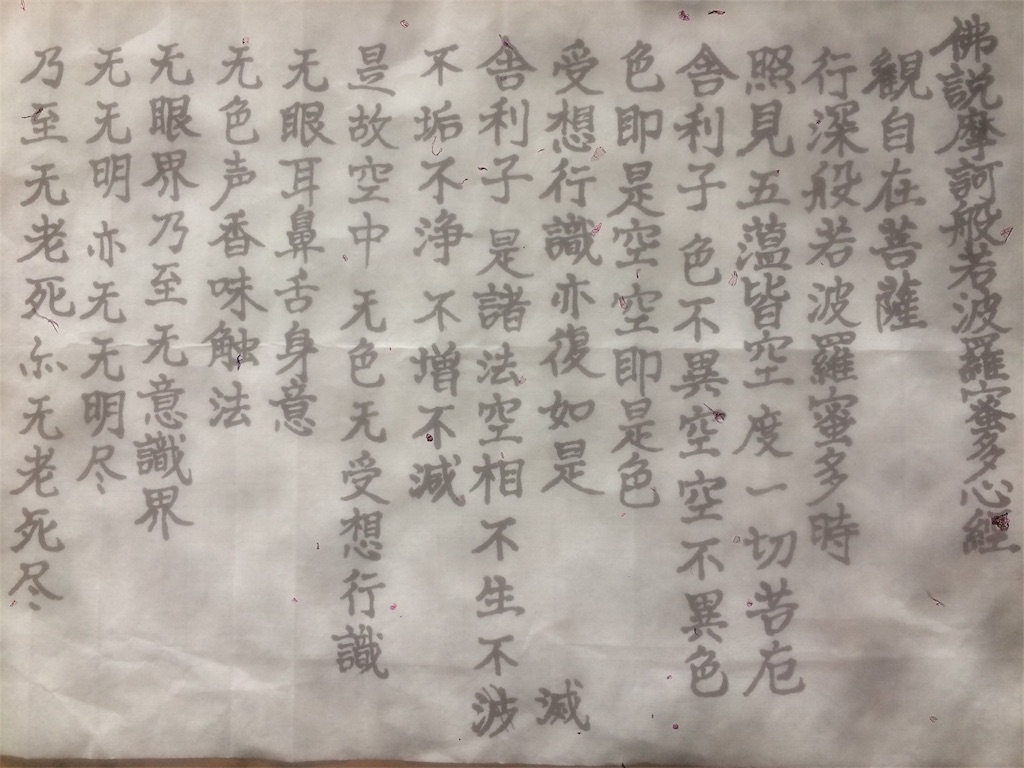 佛説摩訶般若波羅蜜多心経
観自在菩薩
行深般若波羅蜜多時
照見五薀皆空度一切苦厄
舎利子色不異空空不異色
色即是空空即是色
受想行識亦復如是
滅
舎利子是諸法空相不生不
不垢不浄不増不減
是故空中无色无受想行識
无眼耳鼻舌身意
无色声香味触法
无眼界乃至无意識界
无无明亦无无明尽
乃至无老死亦无老死尽